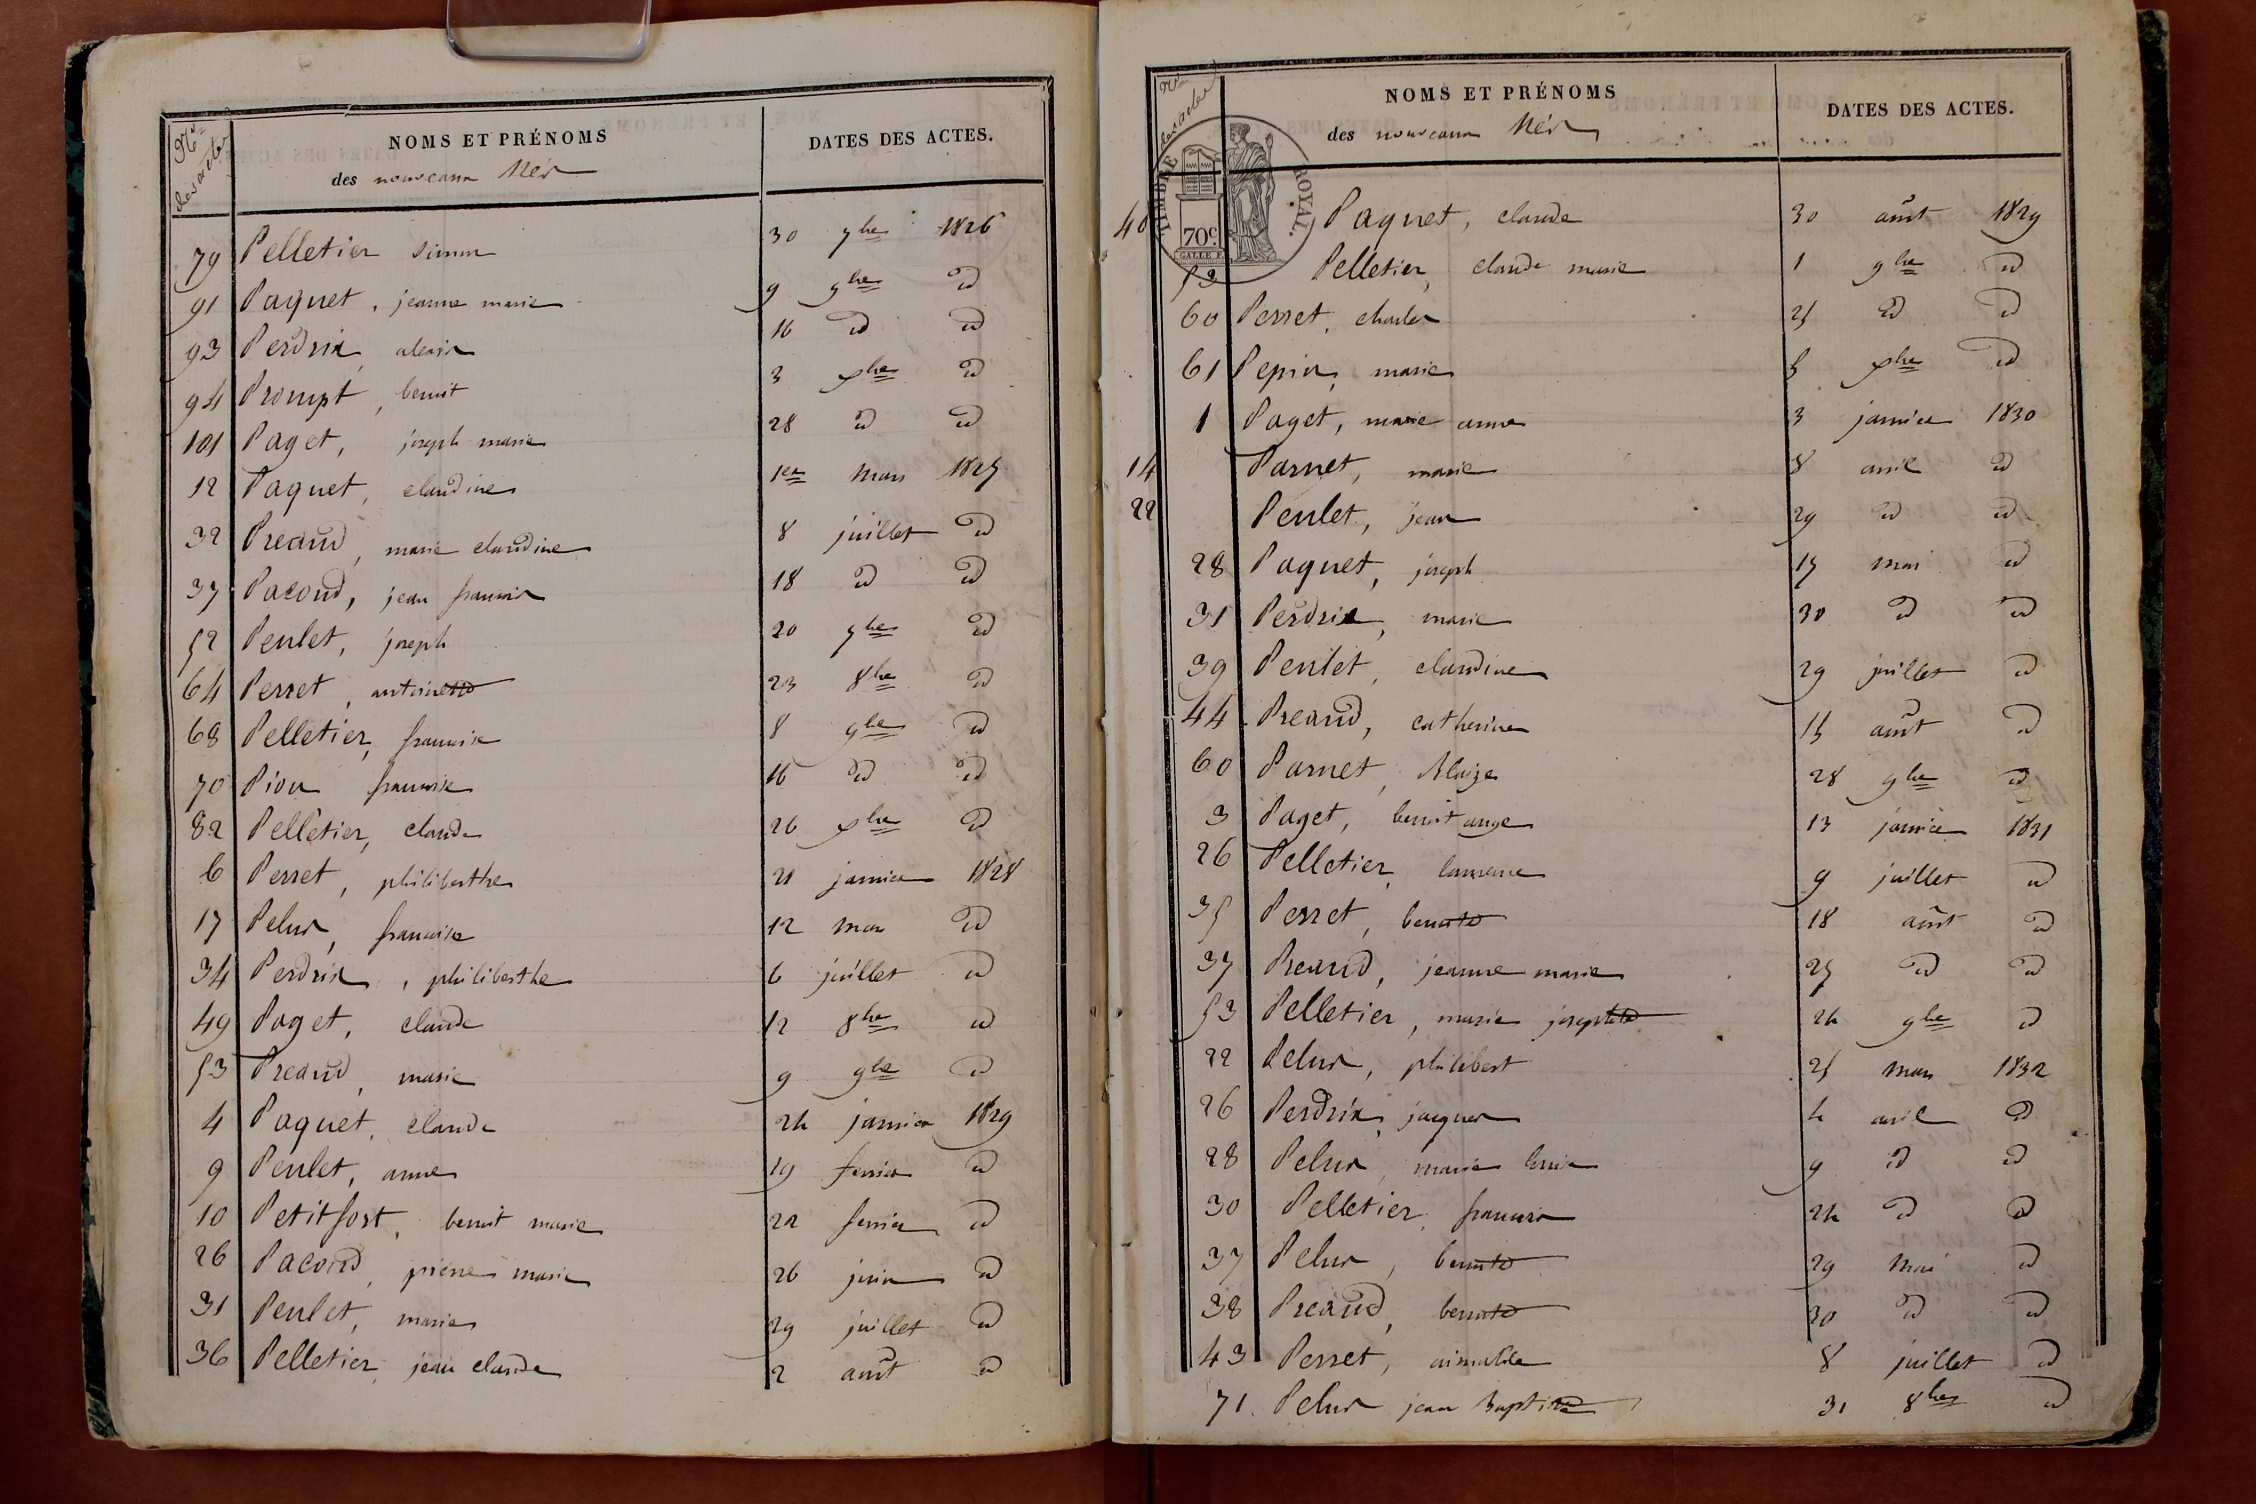 Nos des actes
NOMS ET PRÉNOMS
des nouveaux Nés
DATES DES ACTES.
79 Pelletier simon 30 7bre 1826
91 Paquet, jeanne marie 9 9bre id
93 Perdrix, alexis 16 id id
94 Prompt, benoit 3 xbre id
101 Paget, joseph marie 28 id id
12 Paquet, claudine 1er mars 1827
32 Preaud, marie claudine 8 juillet id
37 Pacoud, jean francois 18 id id
52 Peulet, joseph 20 7bre id
64 Perret, antoinette 23 8bre id
68 Pelletier, francoise 8 9bre id
70 Pion francoise 16 id id
82 Pelletier, claude 26 xbre id
6 Perret, philiberthe 21 janvier 1828
17 Pelus, francoise 12 mars id
34 Perdrix, philiberthe 6 juillet id
49 Paget, claude 12 8bre id
53 Preaud, marie 9 9bre id
4 Paquet, claude 24 janvier 1829
9 Peulet, anne 19 fevrier id
10 Petitfort, benoit marie 22 fevrier id
26 Pacoud, pierre marie 26 juin id
31 Peulet, marie 29 juillet id
36 Pelletier, jean claude 2 août id
Nos des actes
NOMS ET PRÉNOMS
des nouveaux Nés
DATES DES ACTES.
TIMBRE ROYAL.
70c.
40 Paquet, claude 30 août 1829
52 Pelletier, claude marie 1 9bre id
60 Perret, charles 25 id id
61 Pepin, marie 5 xbre id
1 Paget, marie anne 3 janvier 1830
14 Parnet, marie 8 avril id
22 Peulet, jean 29 id id
28 Paquet, joseph 17 mai id
31 Perdrix, marie 30 id id
39 Peulet, claudine 29 juillet id
44 Preaud, catherine 15 août id
60 Parnet, Blaize 28 9bre id
3 Paget, benoit ange 13 janvier 1831
26 Pelletier, laurence 9 juillet id
35 Perret, benoite 18 août id
37 Preaud, jeanne marie 27 id id
53 Pelletier, marie josephte 24 9bre id
22 Pelus, philibert 25 mars 1832
26 Perdrix, jacques 4 avril id
28 Pelus, marie louise 9 id id
30 Pelletier, francois 24 id id
37 Pelus, benoite 29 mai id
38 Preaud, benoite 30 id id
43 Perret, aimable 8 juillet id
71. Pelus jean Baptiste 31 8bre id